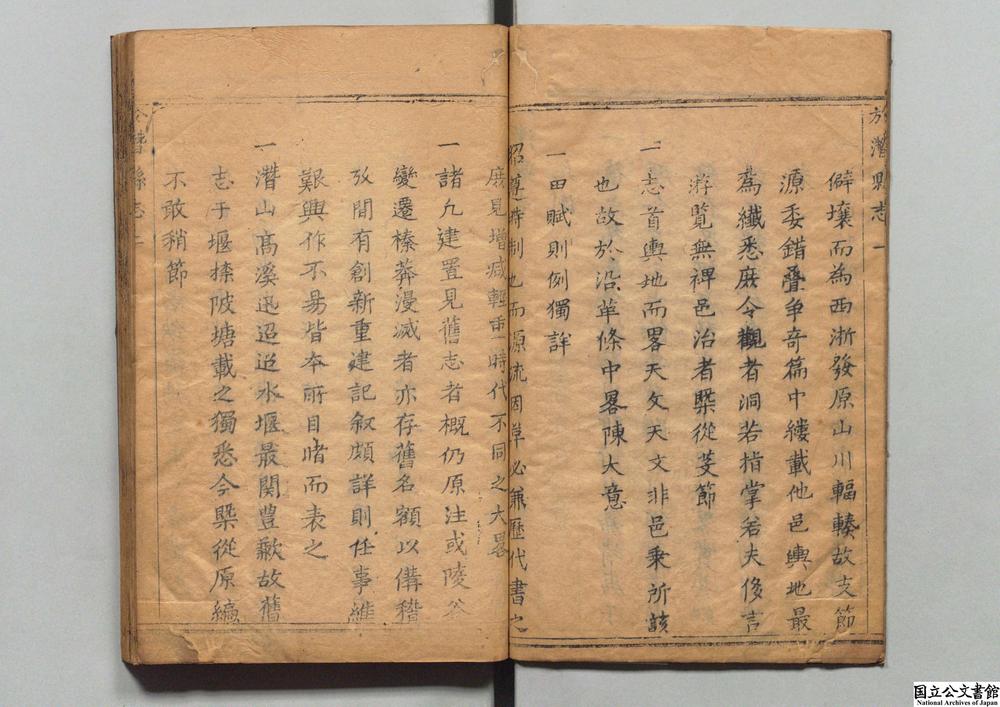 於潛縣志 一
僻壤而為西浙發原山川輻輳故支節
源委錯疊爭奇篇中縷載他邑輿地最
為纖悉庶令觀者洞若指掌若夫侈言
游覽無裨邑治者槩從芟節
一志首輿地而畧天文天文非邑乘所該
也故於沿革條中畧陳大意
一田賦則例獨詳
昭尊時制也而源流因革必兼歷代書之
庶見增减輕重時代不同之大畧
一諸凡建置見舊志者概仍原注或陵谷
變遷榛莽漫滅者亦存舊名額以備稽
攷間有創新重建記叙頗詳則任事維
艱興作不易皆本所目睹而表之
一潛山高溪迅迢迢水堰最関豊歉故舊
志于堰

陂塘載之獨悉今槩從原編
不敢稍節
於潛縣志 二
国立公文書館
National Archives of Japan